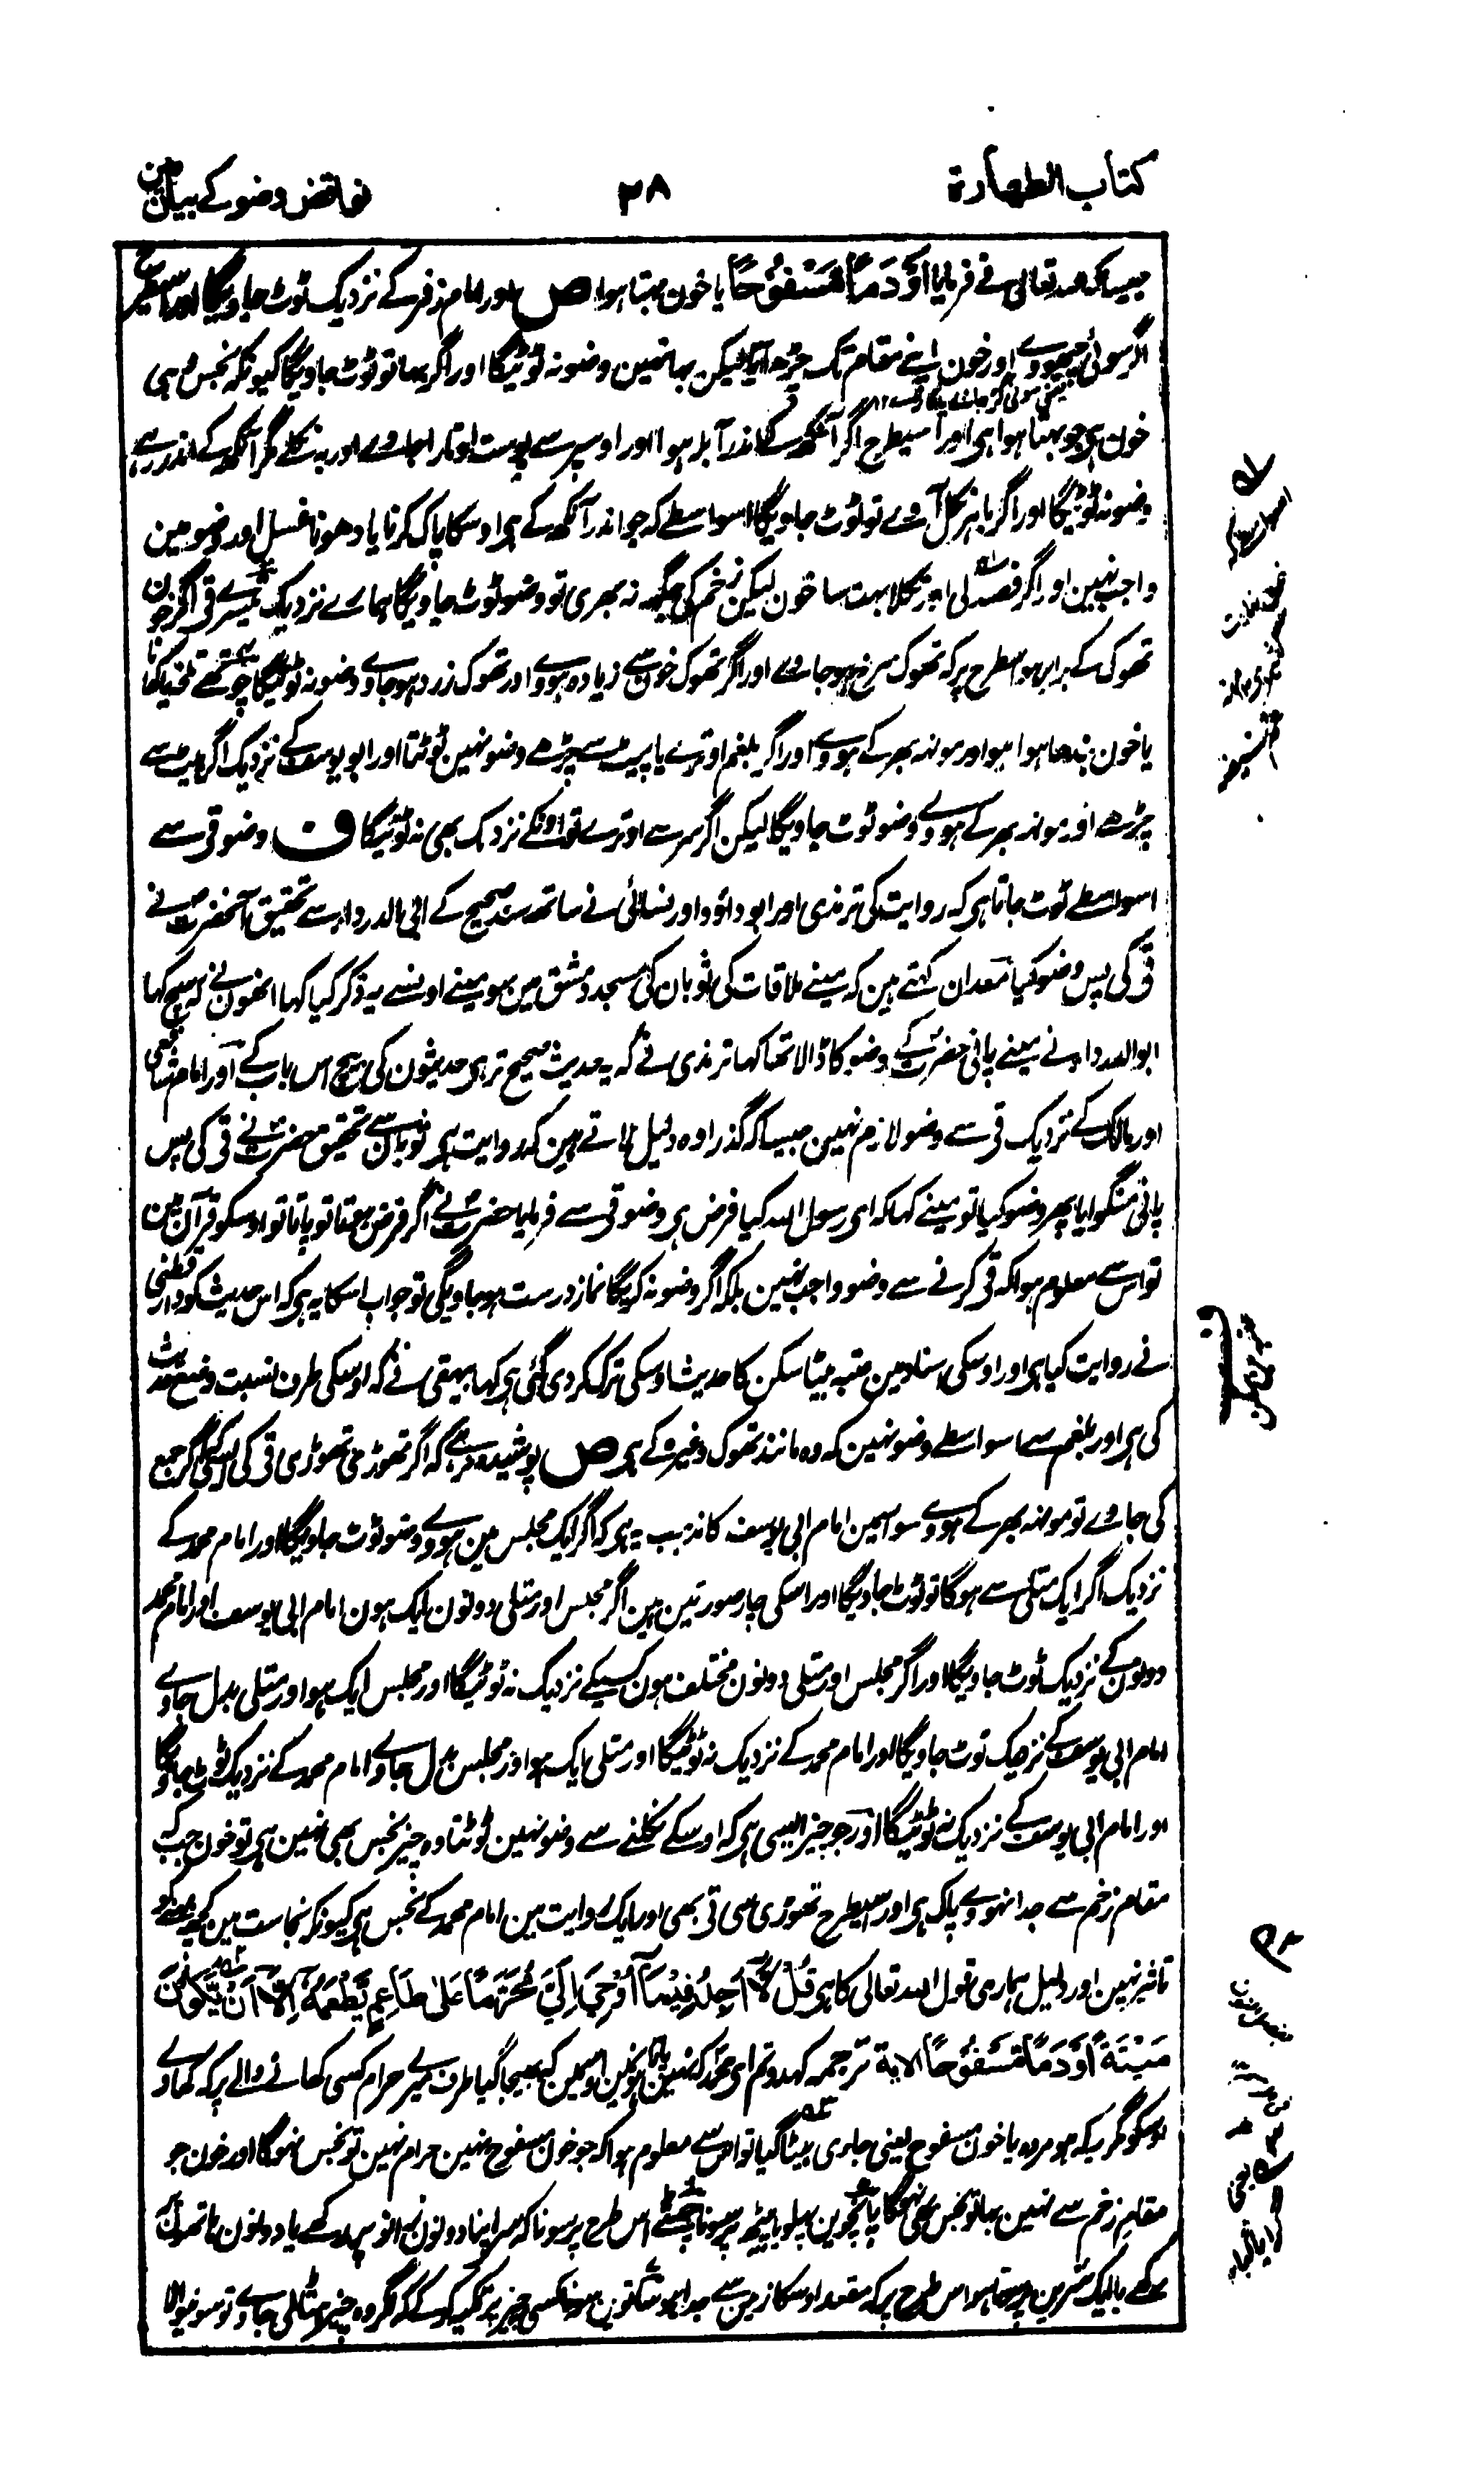 کتاب الطهارة
۳۸
نواقض وضو کے بیان مین
جیسا کہ اللہ تعالی نے فرمایا اَوْ دَمًا مَّسْفُوْحًا یا خون بہتا ہوا ص اور امام زفر کے نزدیک ٹوٹ جاویگا اور اسیطرح
اگر سوئی چبھووے اور خون اپنے مقام تک چڑھ آیا لیکن بہا نہین وضو نہ ٹوٹیگا اور اگر بہا تو ٹوٹ جاویگا کیونکہ نجس وہی
خون ہی جو بہتا ہوا ہی اور اسیطرح اگر آنکھ کے اندر آبلہ ہوا اور اوسپر سے پوست اوتارا جاوے اور یہ نکلے مگر آنکھ کے اندر رہے
وضو نہ ٹوٹیگا اور اگر باہر نکل آوے تو ٹوٹ جاویگا اسواسطے کہ جو اندر آنکھ کے ہی اوسکا پاک کرنا یا دھونا غسل اور وضو مین
واجب نہین اور اگر فصد لی اور نکلا بہت سا خون لیکن زخم کی جگہہ نہ بھری تو وضو ٹوٹ جاویگا ہمارے نزدیک تیسرے قی اگر خون
تھوک کے برابر ہو اسطرح پر کہ تھوک سرخ ہو جاوے اور اگر تھوک خون سے زیادہ ہووے اور تھوک زرد ہو جاوے وضو نہ ٹوٹیگا چوتھے قی کھانا
یا خون بندھا ہوا ہو اور مونہہ بھر کے ہووے اور اگر بلغم اوترے یا پیٹ سے چڑھے وضو نہین ٹوٹتا اور ابو یوسف کے نزدیک اگر پیٹ سے
چڑھے اور مونہہ بھر کے ہووے وضو ٹوٹ جاویگا لیکن اگر سر سے اوترے تو اونکے نزدیک بھی نہ ٹوٹیگا ف وضو قی سے
اسواسطے ٹوٹ جاتا ہی کہ روایت کی ترمذی اور ابو داؤد اور نسائی نے ساتھ سند صحیح کے ابی الدرداء سے تحقیق آنحضرت نے
قی کی پس وضو کیا معدان کہتے ہین کہ مینے ملاقات کی ثوبان کی مسجد دمشق مین سو مینے اونسے یہ ذکر کیا کہا انھون نے کہ سچ کہا
ابو الدرداء نے مینے پانی حضرت کے وضو کا ڈالا تھا کہا ترمذی نے کہ یہ حدیث صحیح تر ہی حدیثون کی بیچ اس باب کے اور امام شافعی
اور مالک کے نزدیک قی سے وضو لازم نہین جیسا کہ گذرا وہ دلیل لاتے ہین کہ روایت ہی ثوبان سے تحقیق حضرت نے قی کی پس
پانی منگوایا پھر وضو کیا تو مینے کہا کہ ای رسول اللہ کیا فرض ہی وضو قی سے فرمایا حضرت نے اگر فرض ہوتا تو پاتا تو اوسکو قرآن مین
تو اس سے معلوم ہوا کہ قی کرنے سے وضو واجب نہین بلکہ اگر وضو نہ کریگا نماز درست ہو جاویگی تو جواب اسکا یہ ہی کہ اس حدیث کو دارقطنی
نے روایت کیا ہی اور اوسکی اسناد مین عتبہ بیٹا سکن کا حدیث اوسکی ترک کر دی گئی ہی کہا بیہقی نے کہ اوسکی طرف نسبت وضع حدیث
کی ہی اور بلغم سے اسواسطے وضو نہین کہ وہ مانند تھوک وغیرہ کے ہی ص پوشیدہ نرہے کہ اگر تھوڑی تھوڑی قی کی اگر جمع
کی جاوے تو مونہہ بھر کے ہووے سو اسمین امام ابی یوسف کا مذہب یہ ہی کہ اگر ایک مجلس مین ہووے وضو ٹوٹ جاویگا اور امام محمد کے
نزدیک اگر ایک متلی سے ہوگا تو ٹوٹ جاویگا اور اسکی چار صورتین ہین اگر مجلس اور متلی دونون ایک ہون امام ابی یوسف اور امام محمد
دونون کے نزدیک ٹوٹ جاویگا اور اگر مجلس اور متلی دونون مختلف ہون کسیکے نزدیک نہ ٹوٹیگا اور مجلس ایک ہو اور متلی بدل جاوے
امام ابی یوسف کے نزدیک ٹوٹ جاویگا اور امام محمد کے نزدیک نہ ٹوٹیگا اور متلی ایک ہو اور مجلس بدل جاوے امام محمد کے نزدیک ٹوٹ جاویگا
اور امام ابی یوسف کے نزدیک نہ ٹوٹیگا اور جو چیز ایسی ہی کہ اوسکے نکلنے سے وضو نہین ٹوٹتا وہ چیز نجس بھی نہین ہی تو خون جب کہ
مقام زخم سے جدا نہووے پاک ہی اور اسیطرح تھوڑی سی قی بھی اور ایک روایت مین امام محمد کے نجس ہی کیونکہ نجاست مین کچھ بہنے کو
تاثیر نہین اور دلیل ہماری قول اللہ تعالی کا ہی قُلْ لَّا اَجِدُ فِیْمَا اُوْحِیَ اِلَیَّ مُحَرَّمًا عَلٰی طَاعِمٍ یَّطْعَمُهٗ اِلَّا اَنْ یَّكُوْنَ
مَیْتَةً اَوْ دَمًا مَّسْفُوْحًا الایة ترجمہ کہدو تم ای محمد کہ نہین پاتا ہون مین اوسمین کہ بھیجا گیا طرف میرے حرام کسی کھانے والے پر کہ کھاوے
اوسکو مگر یہ کہ ہو مردہ یا خون مسفوح یعنی جاری بہتا گیا تو اس سے معلوم ہوا کہ جو خون مسفوح نہین حرام نہین تو نجس نہوگا اور خون جو
مقام زخم سے نہین بہا تو نجس بھی نہوگا پانچوین پہلو یا پیٹھ پر سونا چھٹے اس طرح پر سونا کہ سر اپنا دونون زانو پر رکھے یا دونون ہاتھون
رکھے یا ایک سرین پر بیٹھا ہو اس طرح پر کہ مقعد اوسکا زمین سے جدا ہو ساتوین سونا کسی چیز پر تکیہ کر کے کہ اگر وہ چیز ہٹالی جاوے تو سونیوالا